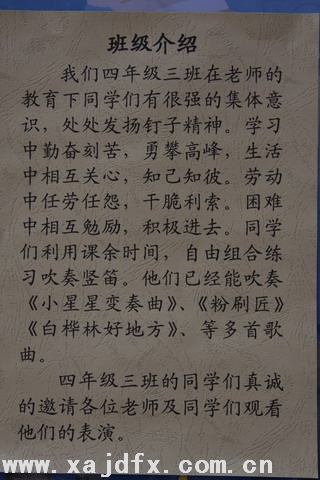 班级介绍
我们四年级三班在老师的
教育下同学们有很强的集体意
识，处处发扬钉子精神。学习
中勤奋刻苦，勇攀高峰，生活
中相互关心，知己知彼。劳动
中任劳任怨，干脆利索。困难
中相互勉励，积极进去。同学
们利用课余时间，自由组合练
习吹奏竖笛。他们已经能吹奏
《小星星变奏曲》、《粉刷匠》
《白桦林好地方》、等多首歌
曲。
四年级三班的同学们真诚
的邀请各位老师及同学们观看
他们的表演。
www.xajdfx.com.cn